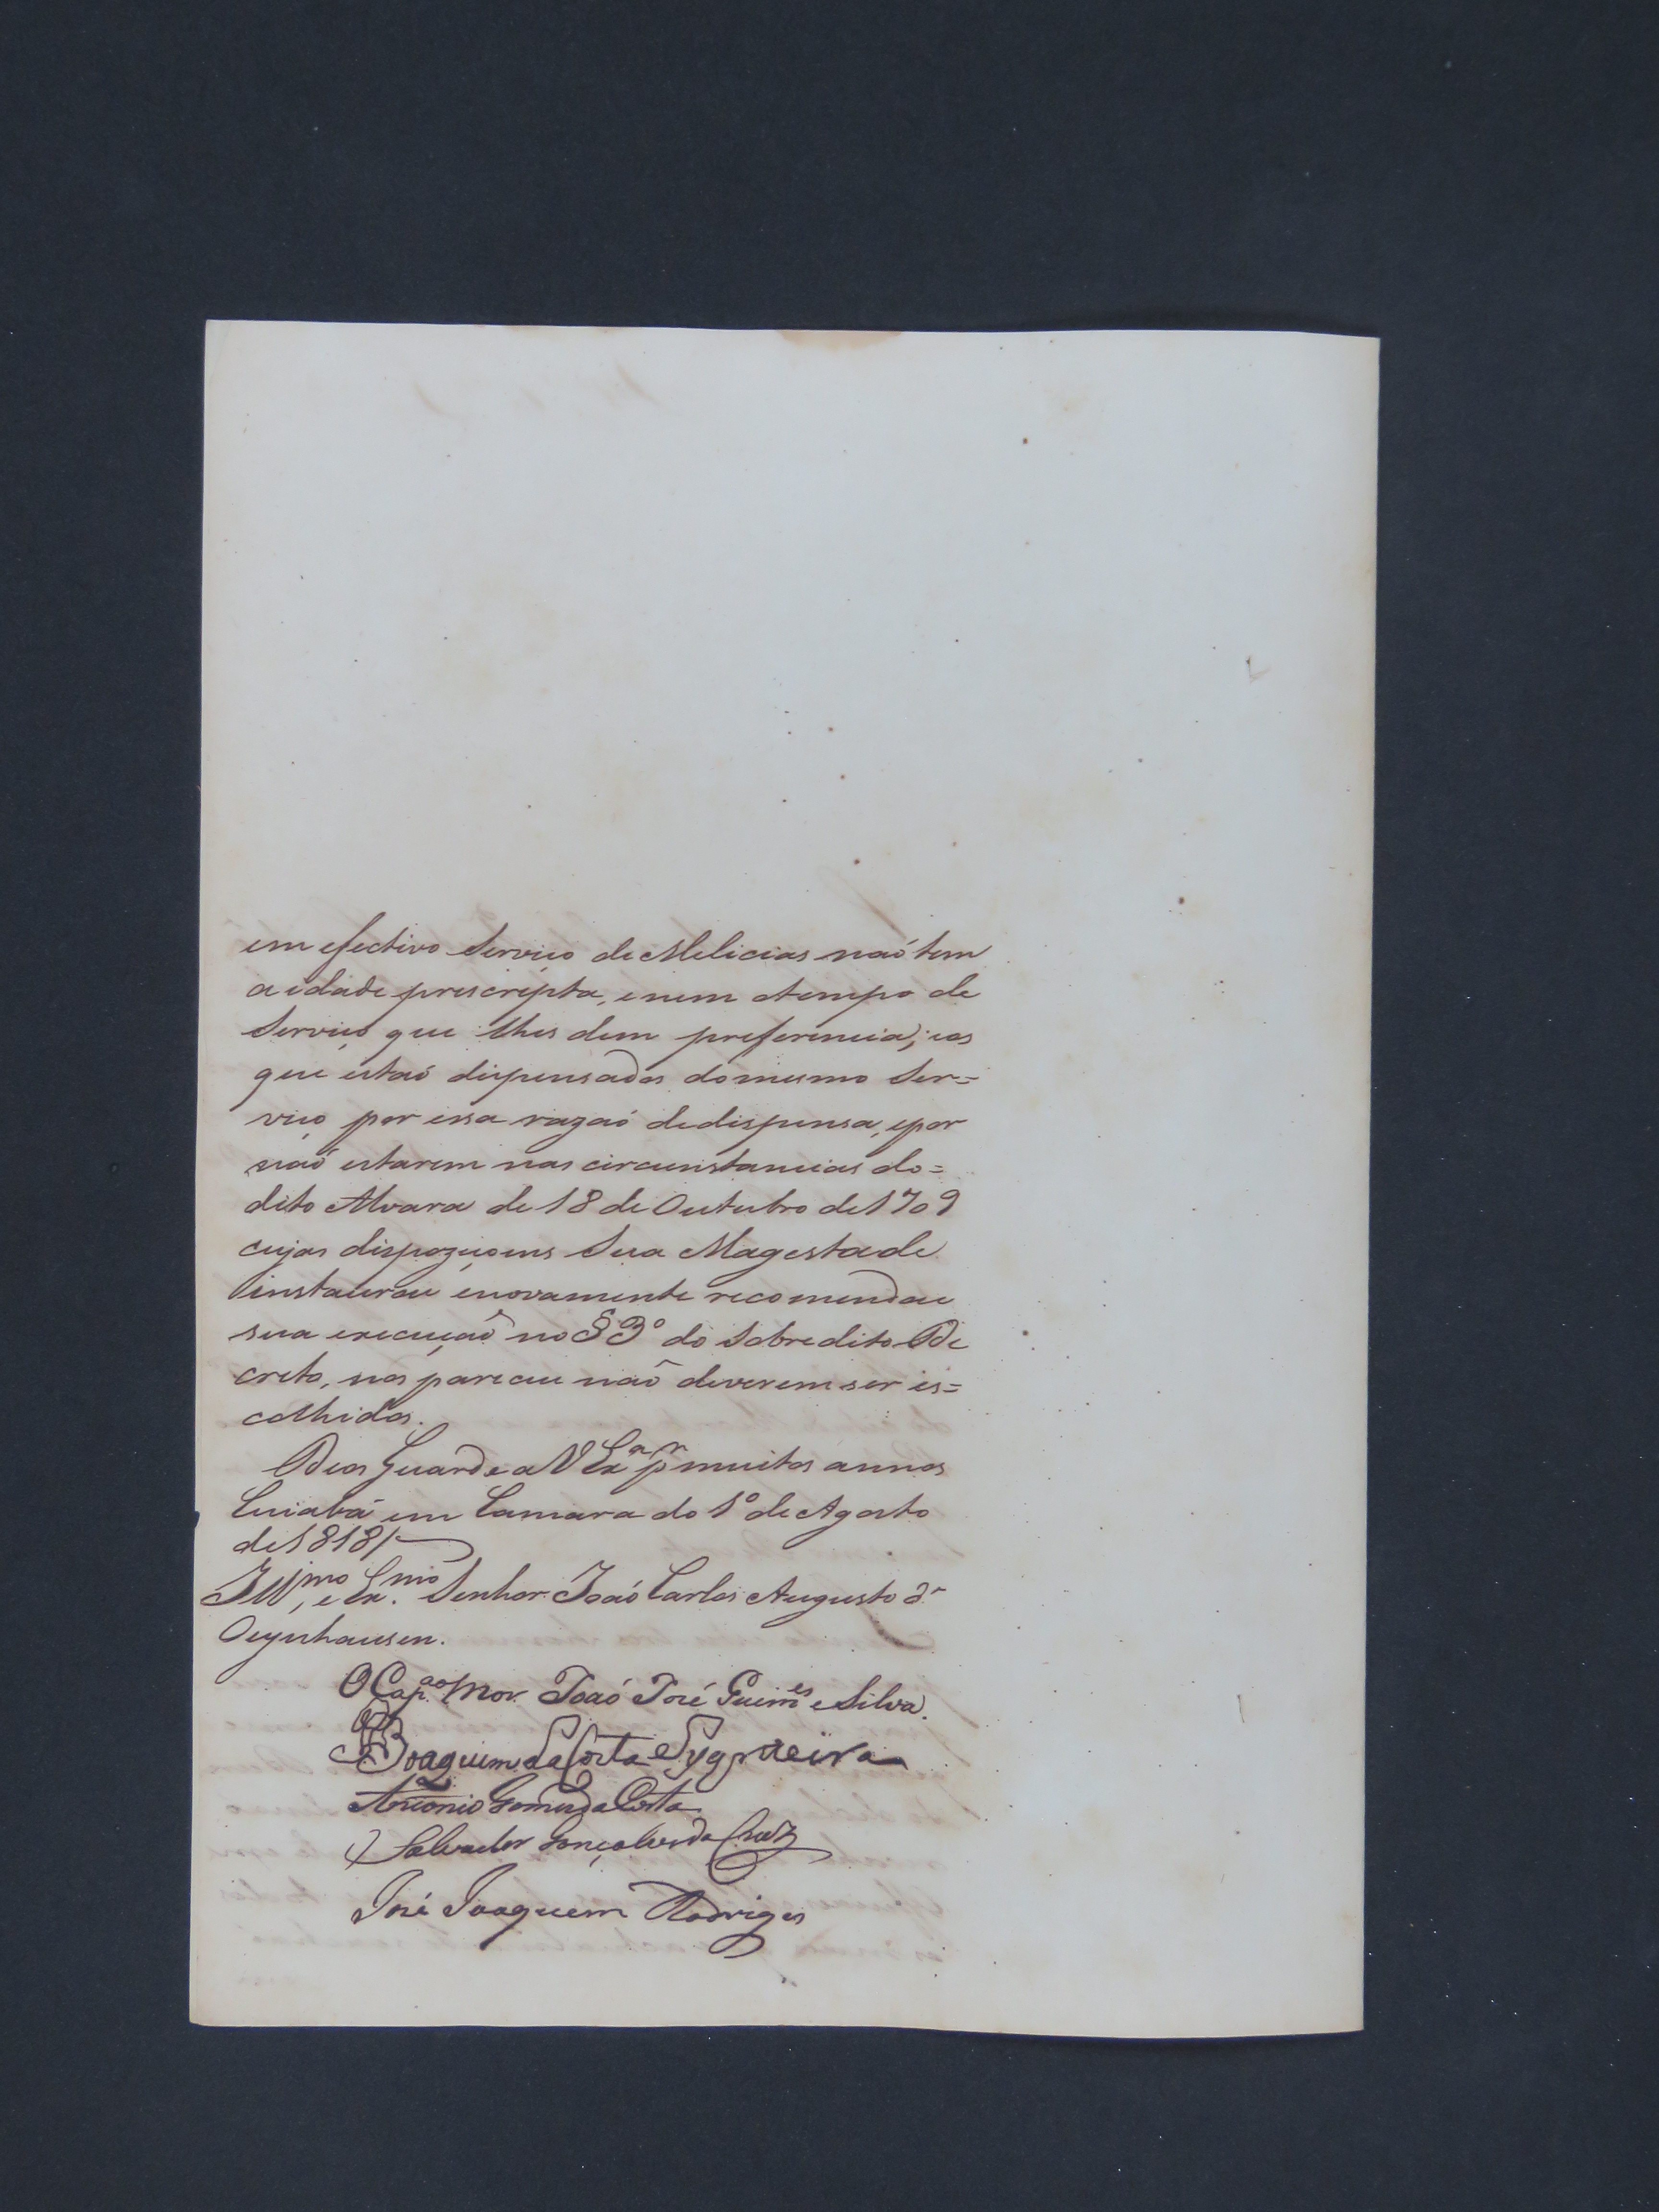 em efectivo Serviço de Melicias naó tem
a idade prescripta, e nem otempo de
Serviço que lhes dem preferencia; eos
que estaó dispensados do mesmo Ser=
viço por essa razaó de dispensa, e por
naó estarem nas circunstancias do=
dito Alvara de 18 de Outubro de 1709
cujas dispoziçoens Sua Magestade
instaurou enovamente recomendou
sua execuçaõ no § 3º do Sobredito De
creto, nos pareceu naõ deverem ser es=
colhidos.
Deos Guarde a V Exª pr muitos annos
Cuiabá em Camara do 1º de Agosto
de 1818/
Illmo, e Exmo. Senhor Joaó Carlos Augusto d'
Oeynhausen.
O Cap.ao Mor Joaó José Guimes e Silva.
Joaquim da Costa e Syqueira
Antonio Gomes da Costa
Salvador Gonçalves da Cruz
José Joaquem Rodrigues